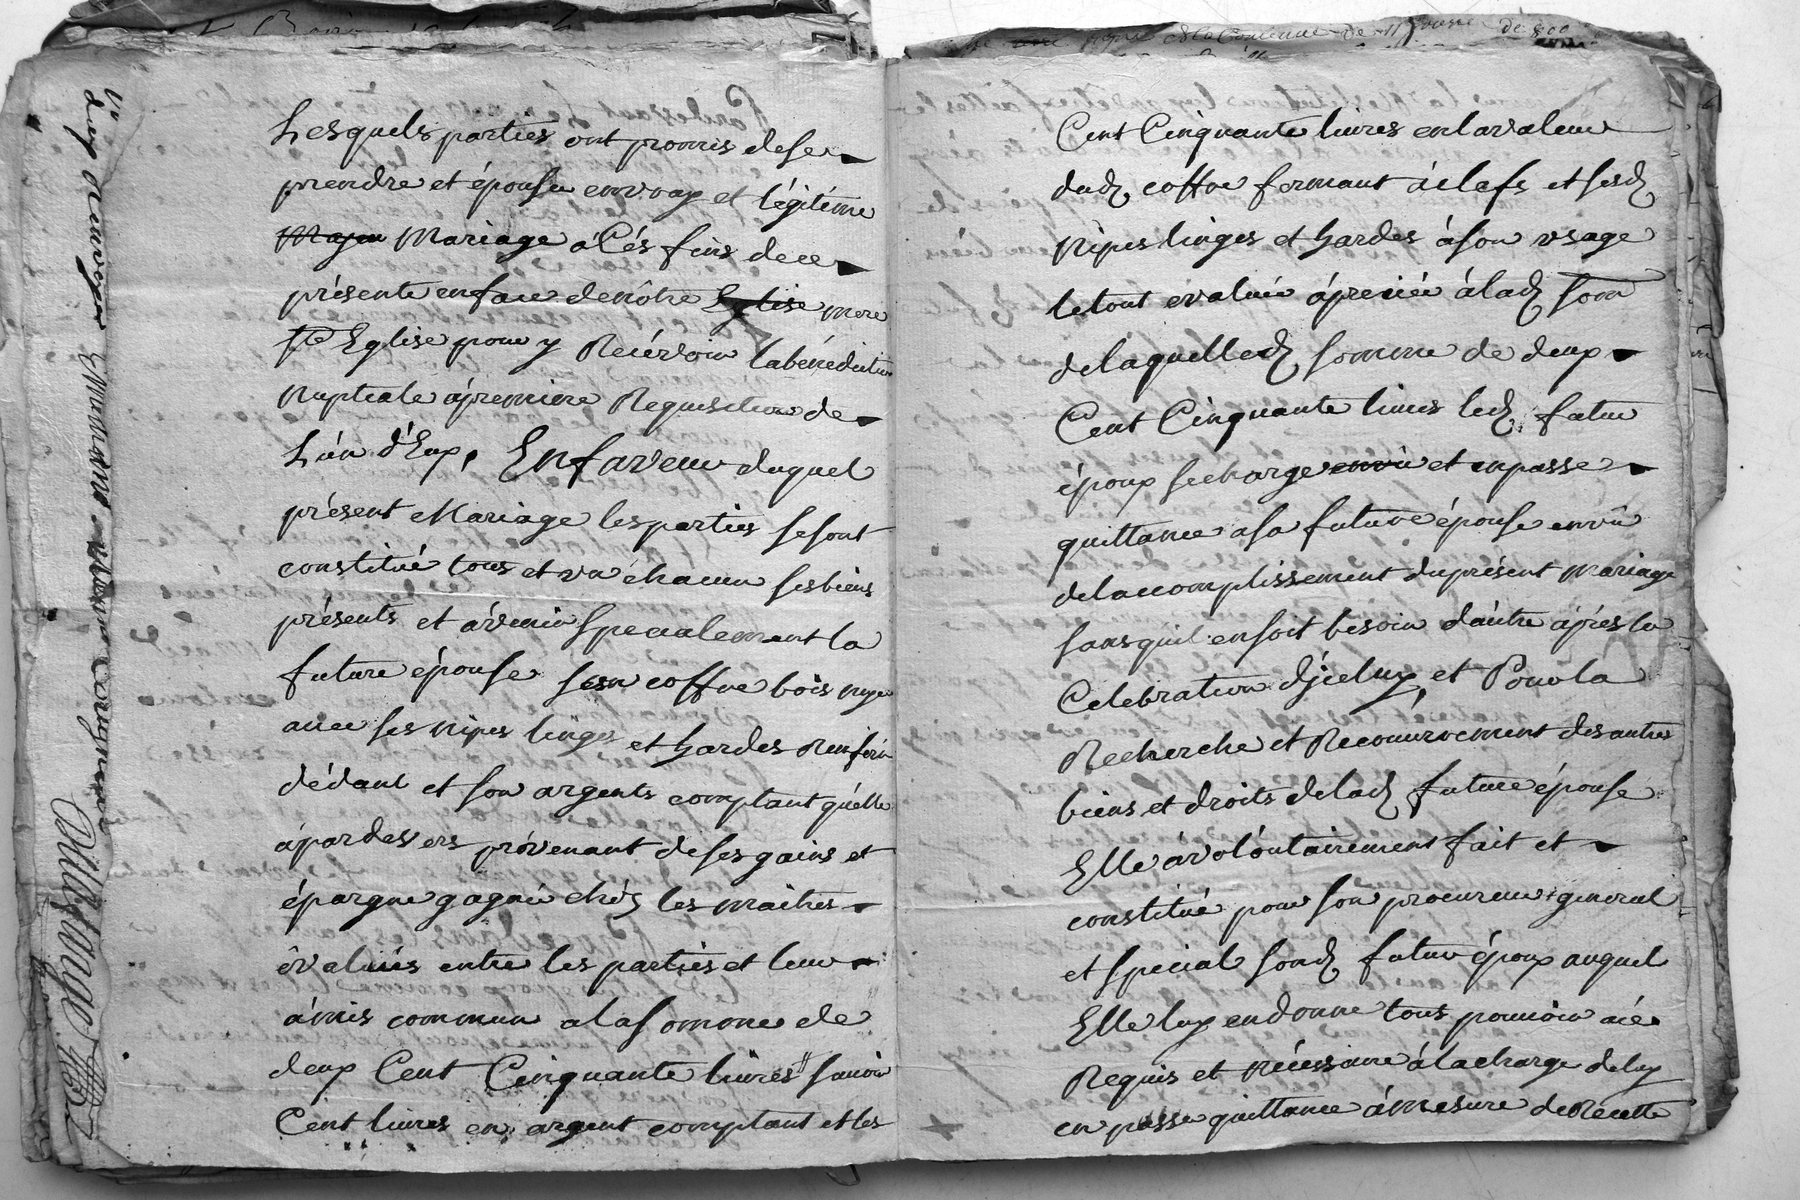 Lesquels parties ont promis de se
prendre et épouser en vray et légitime
Mariage à Cés fins de ce
présenter en face de nôtre Eglise mere
Ste Eglise pour y Recévoir la bénédiction
Nuptiale à premiere Requisition de
L'ún d'Eux, En faveur duquel
présent Mariage les parties se sont
constitué tous et un chacun ses biens
présents et àvenir specialement la
future épouse son coffre bois noyer
avec ses nipes linges et hardes Renfermé
dédant et son argents comptant qu'elle
à pardevers próvenant de ses gains et
épargne gagnée chés les maitres
évalués entre les parties et leur
ámis commun à la somme de
deux Cent Cinquante livres savoir
Cent livres en argent comptant et les
Cent Cinquante livres en la valeur
dud. coffre fermant à clefs et sesd.
Nipes linges et hardes à son usage
le tout evalué ápreciée à lad. som
de laquelled. somme de deux
Cent Cinquante livres led. futur
époux se charge envû et en passe
quittance a sa future épouse envû
de laccomplissement du présent mariage
sans quil en soit besoin dáutre áprés la
Celebration d'jceluy, et Pour la
Recherche et Recouuvrement des autres
biens et droits de lad. future épouse
Elle à volóntairement fait et
constitué pour son procureur general
et special sond. futur époux auquel
Elle luy en donne tous pouvoir à ce
Requis et nécessaire à la charge de luy
en passer quittance á mesure de Recette